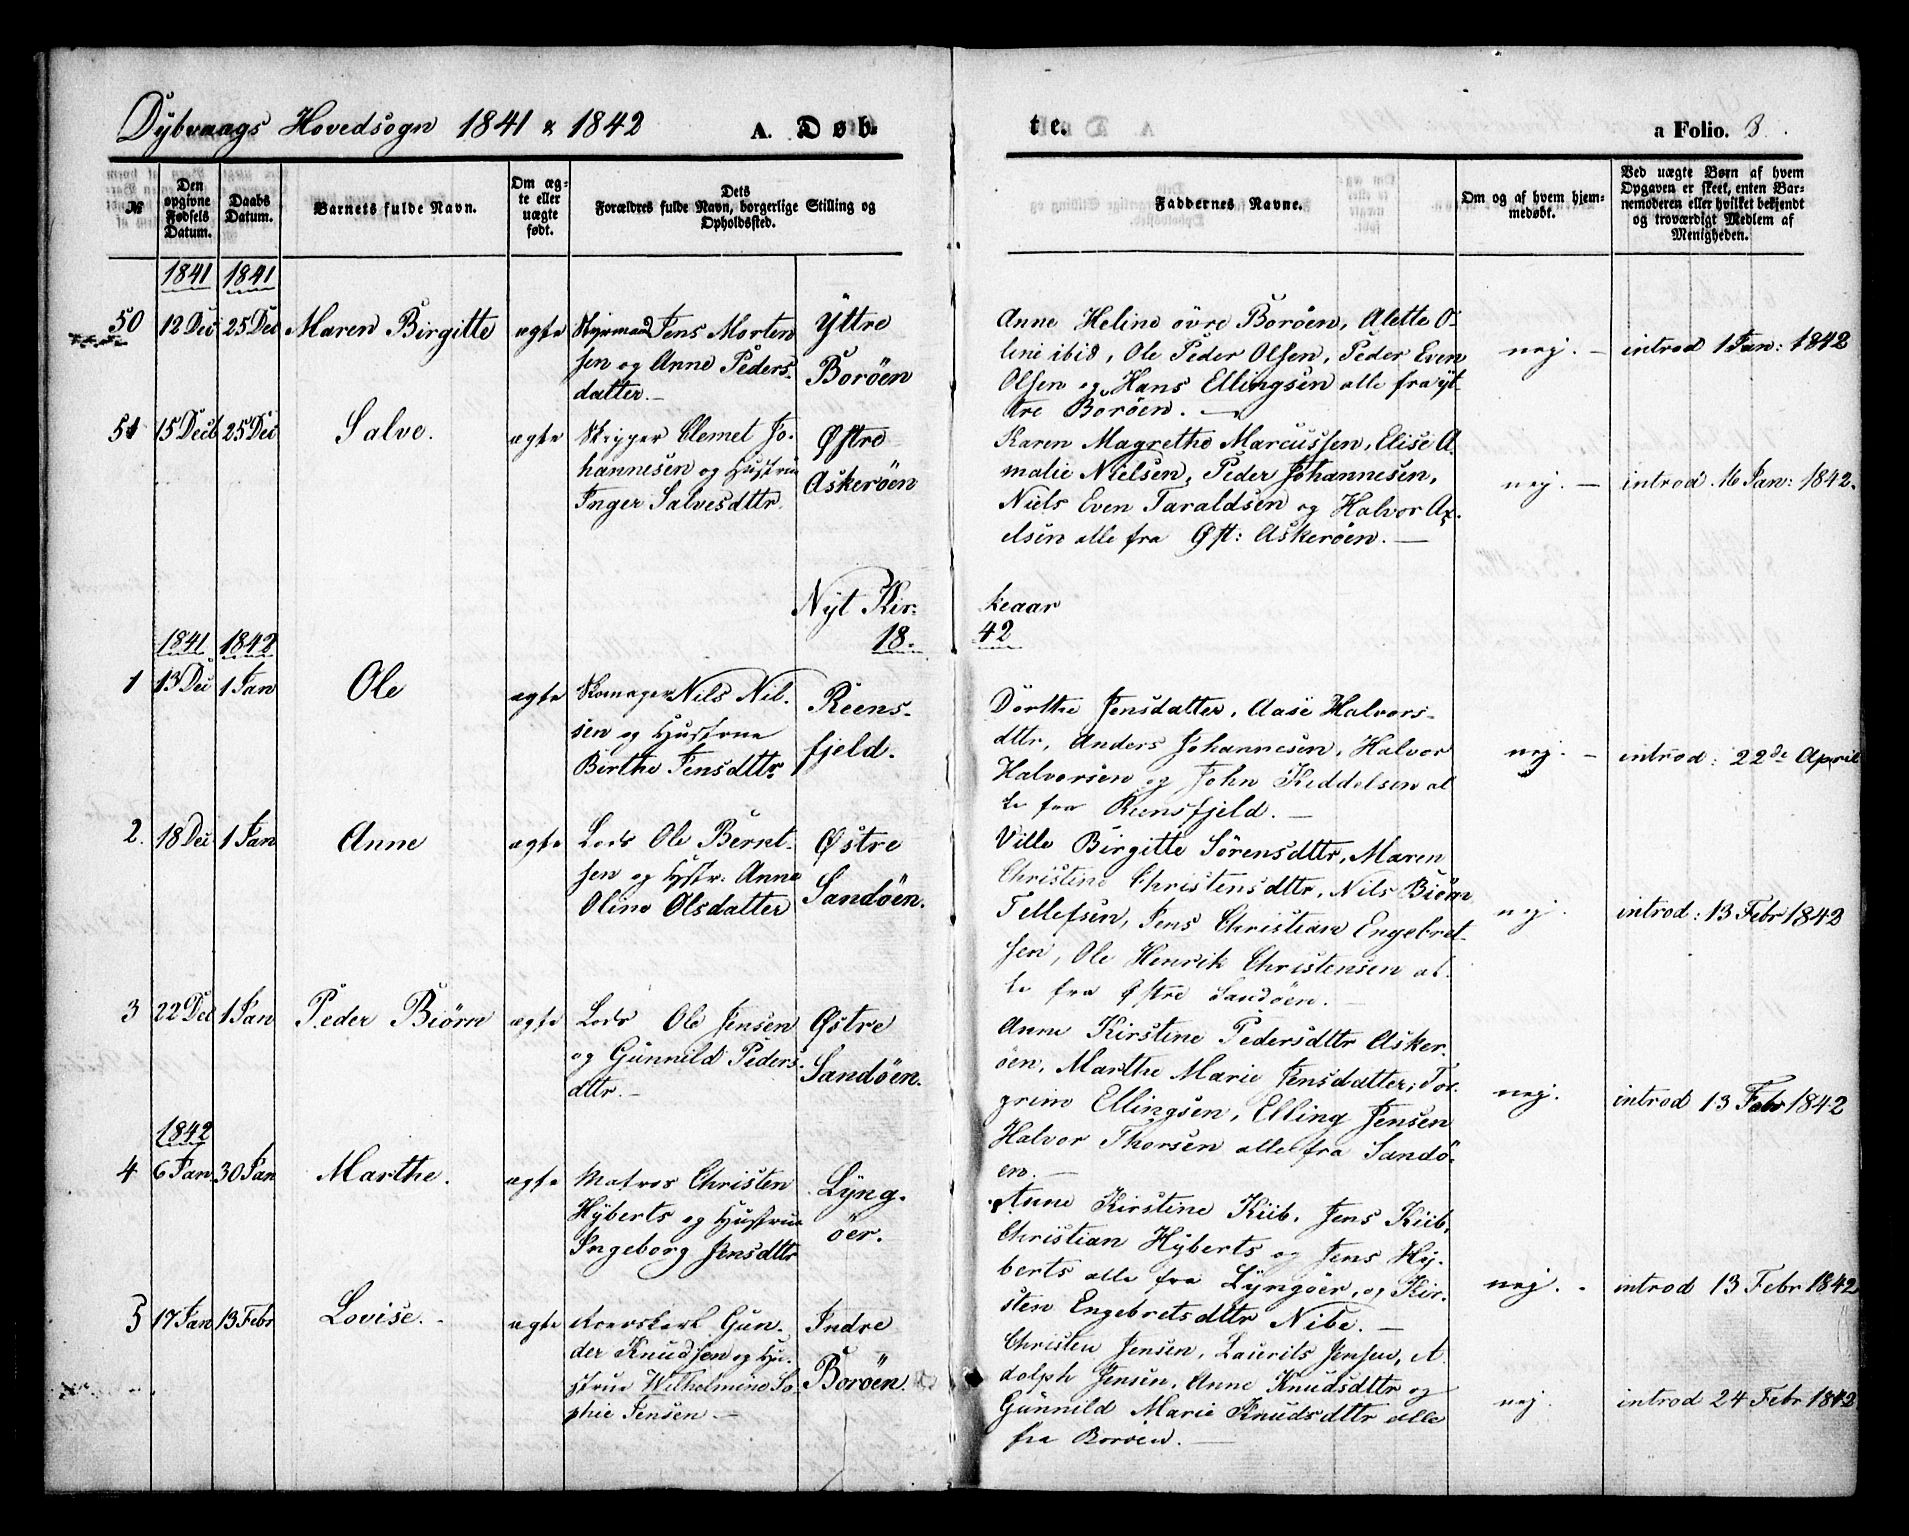 Dybvaags Hovedsogn 1841 & 1842 A. Døb-
te. a Folio. 3.
№
Den opgivne Fødsels Datum.
Daabs Datum.
Barnets fulde Navn.
Om ægte eller uægte født.
Dets
Forældres fulde Navn, borgerlige Stilling og
Opholdssted.
Faddernes Navne.
Om og af hvem hjemmedøbt.
Ved uægte Børn af hvem
Opgaven er skeet, enten Barnemoderen eller hvilket bekjendt
og troværdigt Medlem af
Menigheden.
1841 1841
50 12 Dec 25 Dec Maren Birgitte ægte Styrmand Jens Morten
sen og Anne Peders-
datter.
Yttre
Boröen
Anne Heline övre Boröen, Alette O-
line ibid, Ole Peder Olsen, Peder Even
Olsen og Hans Ellingsen alle fra yt-
tre Boröen.
nej. introd 1 Jan: 1842
51 15 Decb 25 Dec Salve. ægte Skipper Clemet Jo-
hannesen og Hustrue
Inger Salvesdttr.
Østre
Askeröen
Karen Magrethe Marcussen, Elise A-
malie Nielsen, Peder Johannesen,
Niels Even Taraldsen og Halvor Ax-
elsen alle fra Øst: Askeröen.
nej. introd 16 Jan: 1842.
Nyt Kir-
keaar
18-
42
1841 1842
1 13 Dec 1 Jan Ole ægte Skomager Nils Nil-
sen og Hustrue
Birthe Jensdttr
Reens-
fjeld.
Dorthe Jensdatter, Aase Halvors-
dttr, Anders Johannesen, Halvor
Halvorsen og John Keddelsen al-
le fra Reensfjeld.
nej. introd: 22de April
2. 18 Dec 1 Jan Anne ægte Lods Ole Bernt-
sen og Hstr: Anne
Oline Olsdatter
Østre
Sandöen.
Ville Birgitte Sörensdttr, Maren
Christine Christensdttr, Nils Biörn
Tellefsen, Jens Christian Engebret-
sen, Ole Henrik Christensen al-
le fra Østre Sandöen.
nej. introd: 13 Febr 1842
3 22 Dec 1 Jan Peder Biörn ægte Lods Ole Jensen
og Gunnild Peders-
dttr.
Østre
Sandöen.
Anne Kirstine Pedersdttr Asker-
öen, Marthe Marie Jensdatter, Tor-
grim Ellingsen, Elling Jensen
Halvor Thorsen alle fra Sandö-
en.
nej. introd 13 Febr 1842
1842
4 6 Jan 30 Jan Marthe. ægte Matros Christen
Hyberts og Hustrue
Ingeborg Jensdttr
Lyng-
öer.
Anne Kirstine Kiib, Jens Kiib,
Christian Hyberts og Jens Hy-
berts alle fra Lyngöer, og Kir-
sten Engebretsdttr Nibe.
nej. introd 13 Febr 1842
5 17 Jan 13 Febr Lovise. ægte Gun-
der Knudsen og Hu-
strue Wilhelmine So-
phie Jensen
Indre
Boröen.
Christen Jensen, Laurits Jensen, A-
dolph Jensen, Anne Knudsdttr og
Gunnild Marie Knudsdttr alle
fra Boröen.
nej. introd 24 Febr 1842